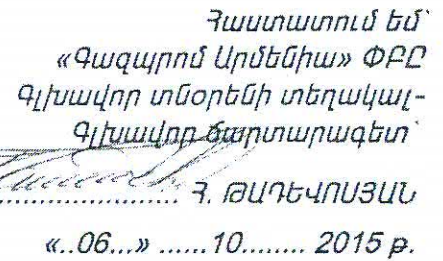 Հաստատում եմ՝
«Գազպրոմ Արմենիա» ՓԲԸ
Գլխավոր տնօրենի տեղակալ-
Գլխավոր ճարտարագետ՝
....................... Հ. ԹԱԴԵՎՈՍՅԱՆ
«..06...» ......10........ 2015 թ.